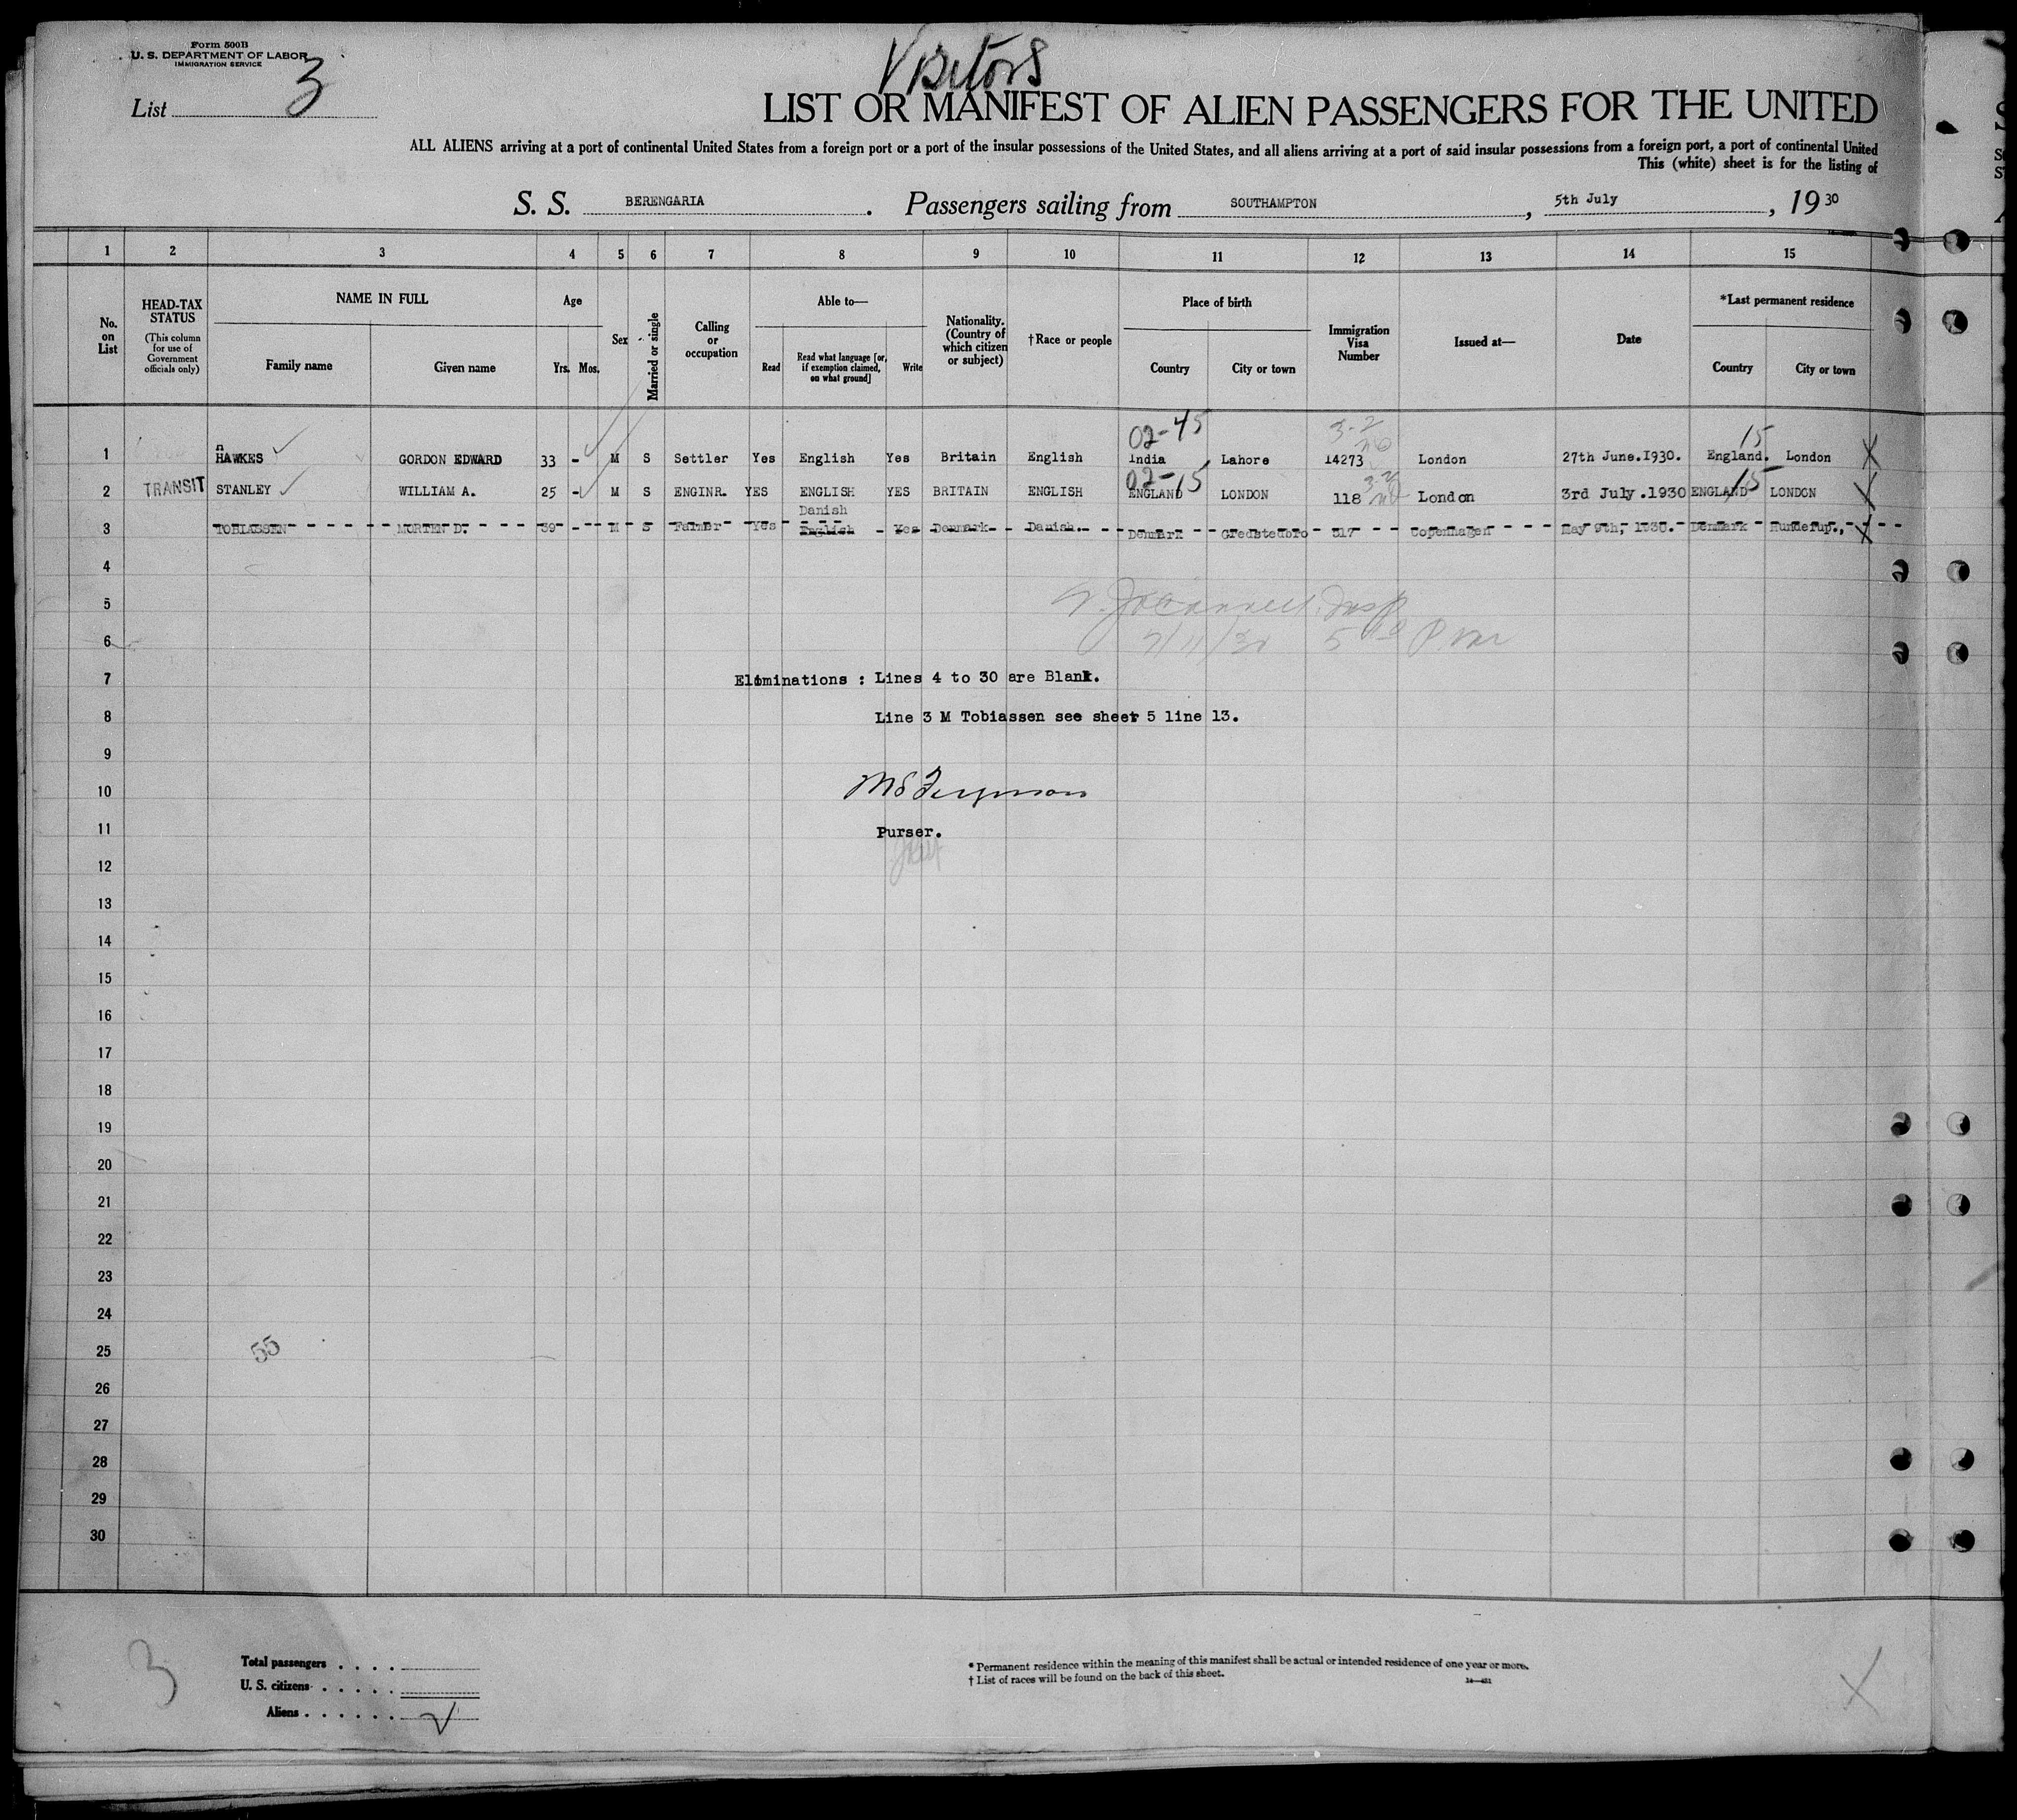 Form 500B
U. S. DEPARTMENT OF LABOR
IMMIGRATION SERVICE
Visitors
List 3
LIST OR MANIFEST OF ALIEN PASSENGERS FOR THE UNITED
ALL ALIENS arriving at a port of continental United States from a foreign port or a port of the insular possessions of the United States, and all aliens arriving at a port of said insular possessions from a foreign port, a port of continental United
This (white) sheet is for the listing of
S. S. BERENGARIA . Passengers sailing from SOUTHAMPTON , 5th July , 19 30
1 2 3 4 5 6 7 8 9 10 11 12 13 14 15
No. on List
HEAD-TAX STATUS
(This column for use of Government officials only)
NAME IN FULL
Family name
Given name
Age
Yrs. Mos.
Sex
Married or single
Calling or occupation
Able to—
Read
Read what language [or, if exemption claimed, on what ground]
Write
Nationality. (Country of which citizen or subject)
†Race or people
Place of birth
Country
City or town
Immigration Visa Number
Issued at—
Date
*Last permanent residence
Country
City or town
02-45 3-2 15
1 HAWKES GORDON EDWARD 33 - M S Settler Yes English Yes Britain English India Lahore 14273 London 27th June.1930. England. London X
02-15 3-2 15
2 TRANSIT STANLEY WILLIAM A. 25 - M S ENGINR. YES ENGLISH YES BRITAIN ENGLISH ENGLAND LONDON 118 London 3rd July.1930 ENGLAND LONDON X
Danish
3 TOBIASSEN MORTEN D. 39 - M S Farmer Yes English Yes Denmark Danish. Denmark Gredstedbro 517 Copenhagen May 9th, 1930. Denmark X
4
5
6 7/11/30 5 PM
7 Eliminations : Lines 4 to 30 are Blank.
8 Line 3 M Tobiassen see sheet 5 line 13.
9
10
11 Purser.
12
13
14
15
16
17
18
19
20
21
22
23
24
25 55
26
27
28
29
30
3
Total passengers . . . .
U. S. citizens . . . . .
Aliens . . . . . .
* Permanent residence within the meaning of this manifest shall be actual or intended residence of one year or more.
† List of races will be found on the back of this sheet.
X